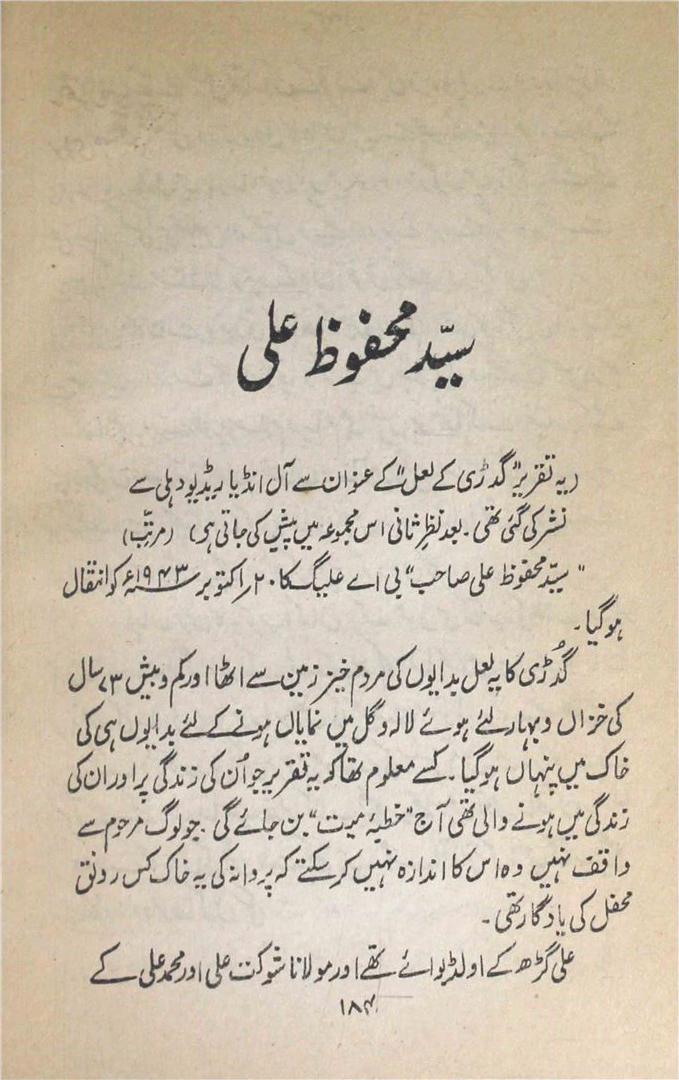 سیّد محفوظ علی
(یہ تقریر "گدڑی کے لعل" کے عنوان سے آل انڈیا ریڈیو دہلی سے
نشر کی گئی تھی ۔ بعد نظرِ ثانی اس مجموعہ میں پیش کی جاتی ہے) (مرتّب)
"سیّد محفوظ علی صاحب" بی اے علیگ کا ۲۰؍ اکتوبر ۱۹۴۳ء کو انتقال
ہوگیا۔
گُدڑی کا یہ لعل بدایوں کی مردم خیز زمین سے اٹھا اور کم و بیش ۷۳ سال
کی خزاں و بہار لئے ہوئے لالہ و گل میں نمایاں ہونے کے لئے بدایوں ہی کی
خاک میں پنہاں ہوگیا۔ کسے معلوم تھا کہ یہ تقریر جو اُن کی زندگی پر اور ان کی
زندگی میں ہونے والی تھی آج "خطبۂ میت" بن جائے گی ۔ جو لوگ مرحوم سے
واقف نہیں وہ اس کا اندازہ نہیں کر سکتے کہ پروانہ کی یہ خاک کس رونق
محفل کی یادگار تھی ۔
علی گڑھ کے اولڈ بوائے تھے اور مولانا شوکت علی اور محمد علی کے
۱۸۴